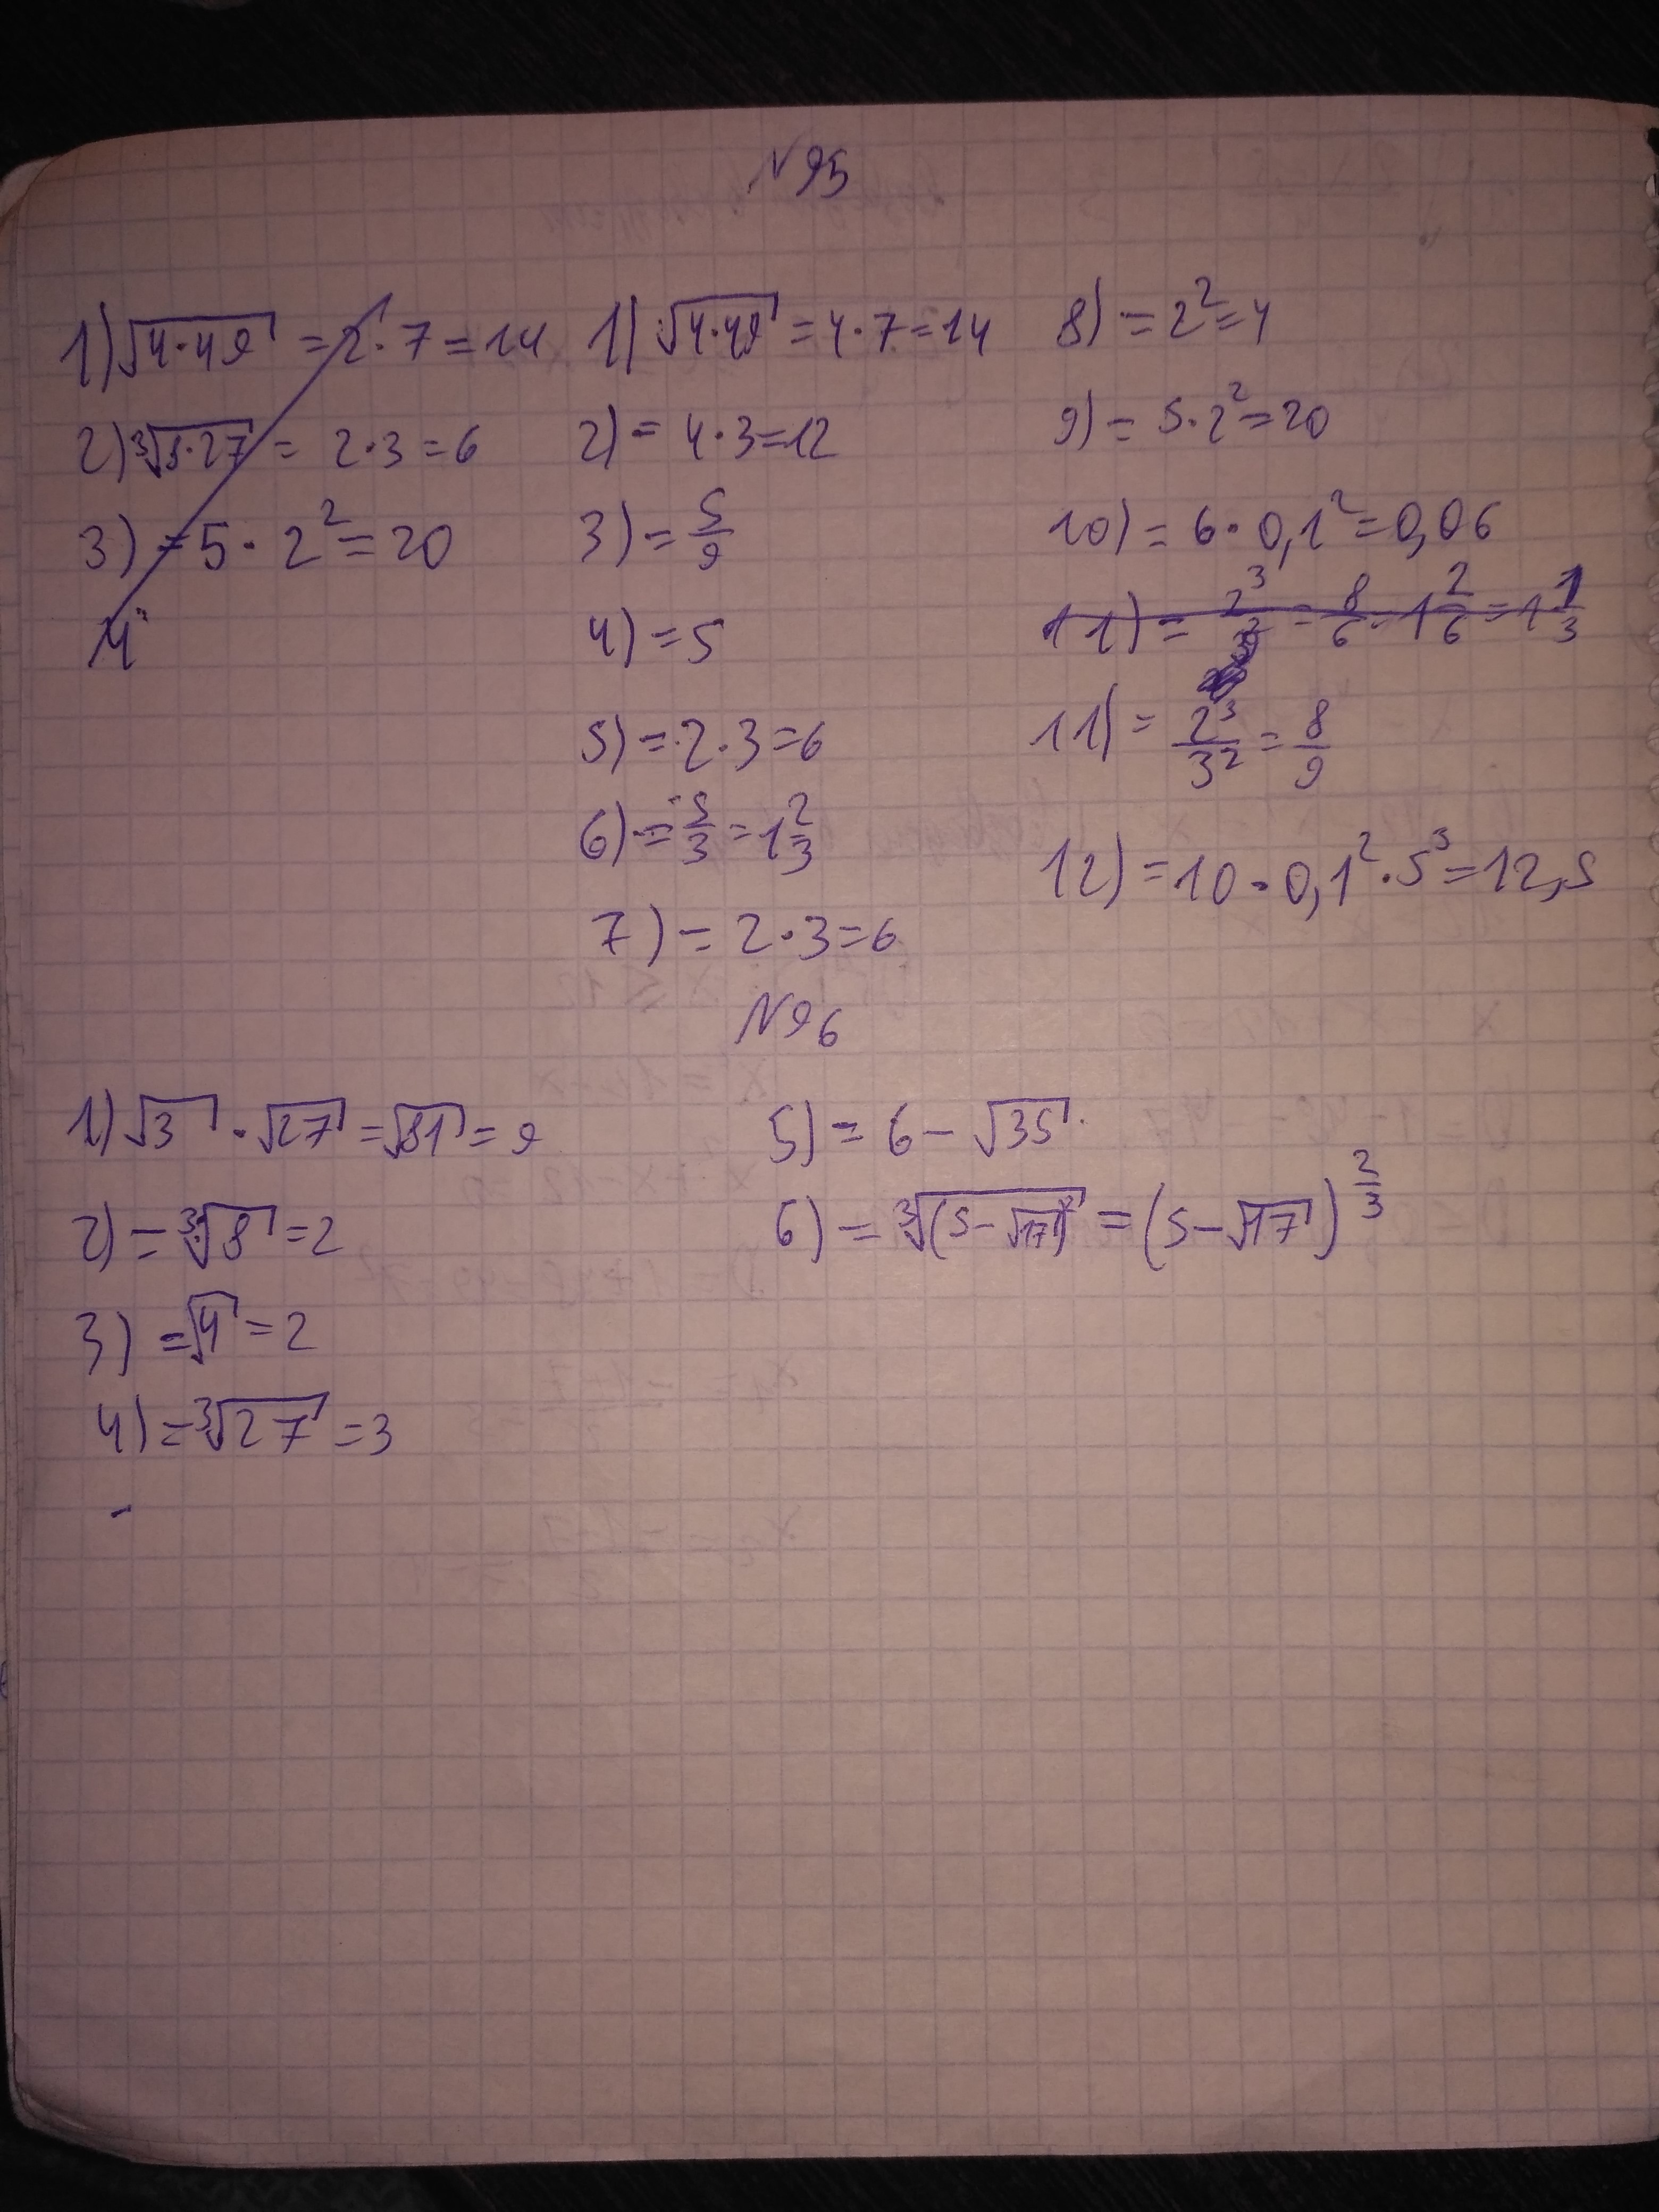 N95
1) √4·49 = 2·7 = 14
2) ∛8·27 = 2·3 = 6
3) = 5·2² = 20
4
1) √4·49 = 4·7 = 14
2) = 4·3 = 12
3) = 5/9
4) = 5
5) = 2·3 = 6
6) = 5/3 = 1 2/3
7) = 2·3 = 6
8) = 2² = 4
9) = 5·2² = 20
10) = 6·0,1² = 0,06
11) = 2³/3² = 8/6 = 1 2/6 = 1 1/3
11) = 2³/3² = 8/9
12) = 10·0,1²·5³ = 12,5
N96
1) √3 · √27 = √81 = 9
2) = ∛8 = 2
3) = √4 = 2
4) = ∛27 = 3
5) = 6 - √35
6) = ∛(5-√17)² = (5-√17)^2/3